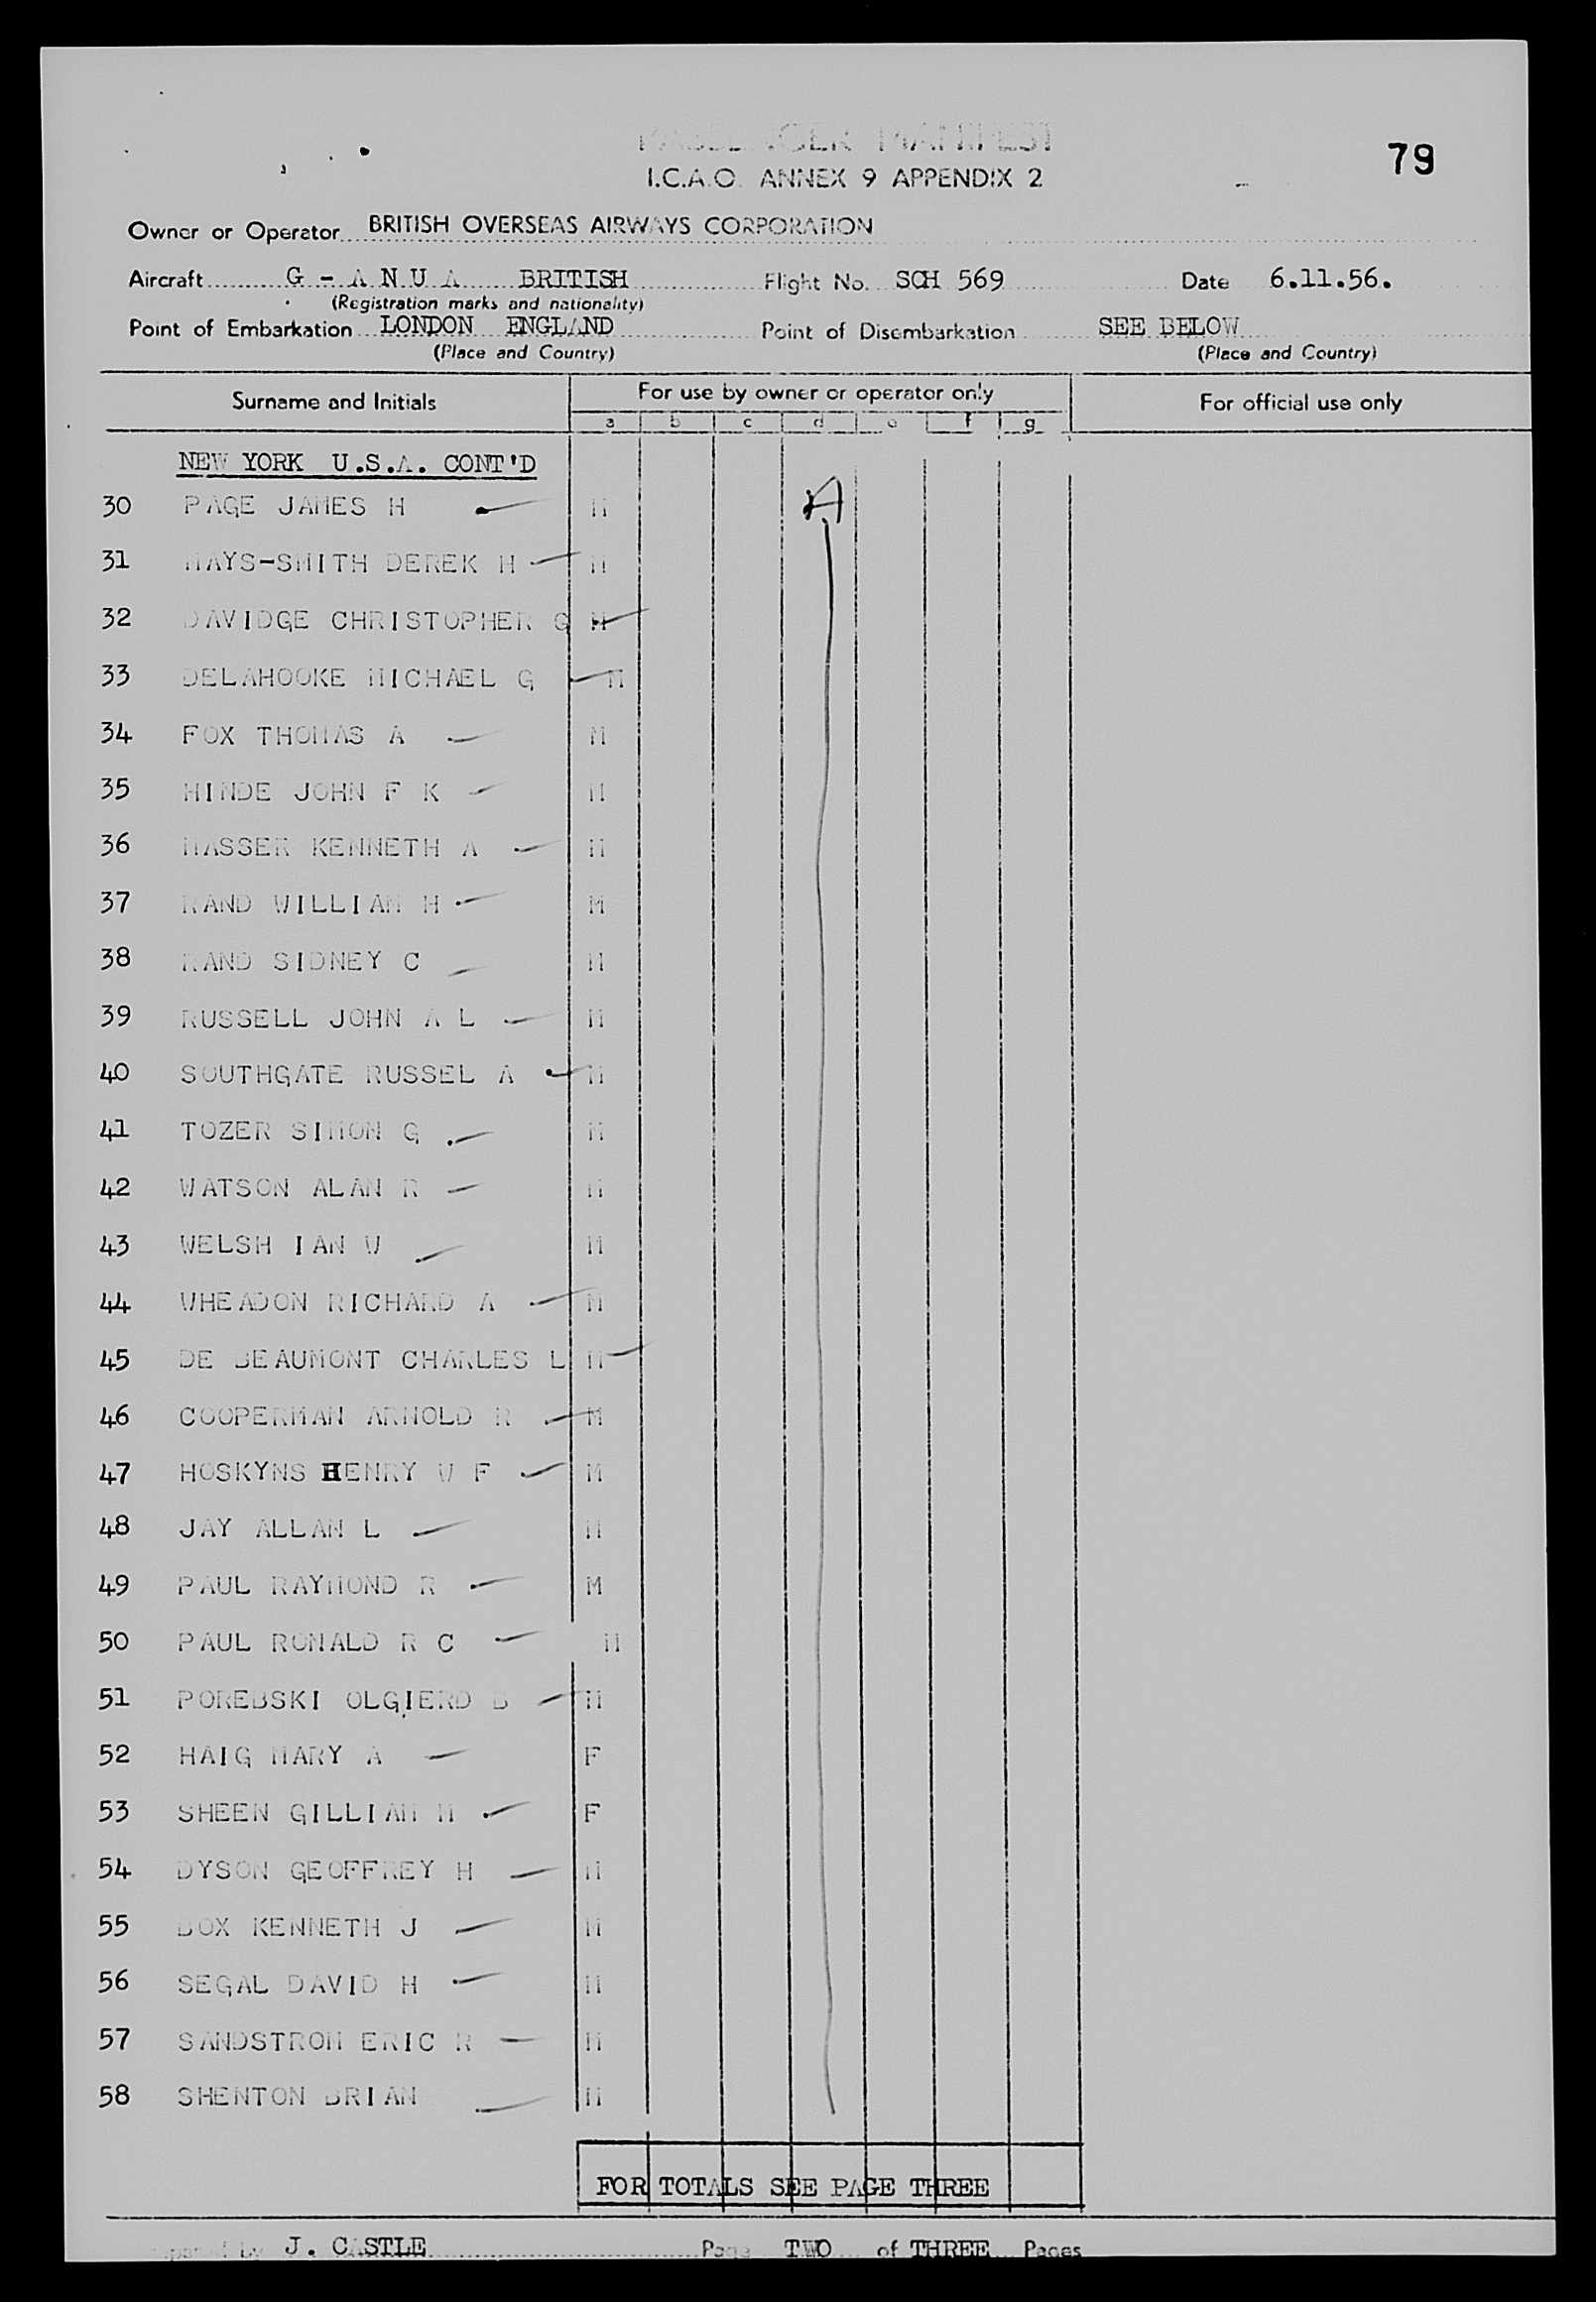 PASSENGER MANIFEST
79
I.C.A.O. ANNEX 9 APPENDIX 2
Owner or Operator BRITISH OVERSEAS AIRWAYS CORPORATION
Aircraft G - A N U A BRITISH Flight No. SCH 569 Date 6.11.56.
(Registration marks and nationality)
Point of Embarkation LONDON ENGLAND Point of Disembarkation SEE BELOW
(Place and Country) (Place and Country)
Surname and Initials For use by owner or operator only For official use only
a b c d e f g
NEW YORK U.S.A. CONT'D
30 PAGE JAMES H M A
31 MAYS-SMITH DEREK H M
32 DAVIDGE CHRISTOPHER G M
33 DELAHOOKE MICHAEL G M
34 FOX THOMAS A M
35 HINDE JOHN F K M
36 MASSER KENNETH A M
37 RAND WILLIAM H M
38 RAND SIDNEY C M
39 RUSSELL JOHN A L M
40 SOUTHGATE RUSSEL A M
41 TOZER SIMON G M
42 WATSON ALAN R M
43 WELSH IAN W M
44 WHEADON RICHARD A M
45 DE BEAUMONT CHARLES L M
46 COOPERMAN ARNOLD R M
47 HOSKYNS HENRY W F M
48 JAY ALLAN L M
49 PAUL RAYMOND R M
50 PAUL RONALD R C M
51 POREBSKI OLGIERD B M
52 HAIG MARY A F
53 SHEEN GILLIAM M F
54 DYSON GEOFFREY H M
55 BOX KENNETH J M
56 SEGAL DAVID H M
57 SANDSTROM ERIC R M
58 SHENTON BRIAN M
FOR TOTALS SEE PAGE THREE
J. CASTLE Page TWO of THREE Pages